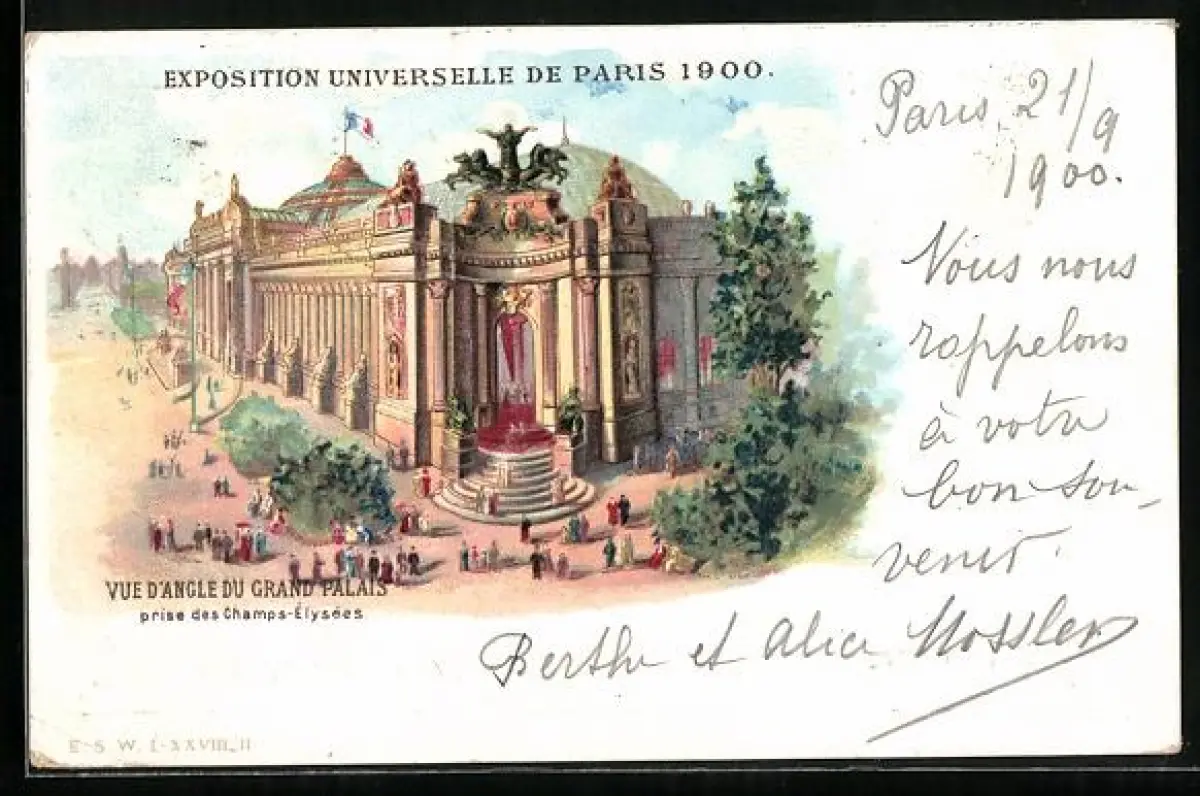 EXPOSITION UNIVERSELLE DE PARIS 1900.
Paris, 21/9
1900.
Nous nous
rappelons
à votre
bon sou-
venir.
Berthe et Alice Mossler
VUE D'ANGLE DU GRAND PALAIS
prise des Champs-Élysées
E-S W. I-XXVIII_II